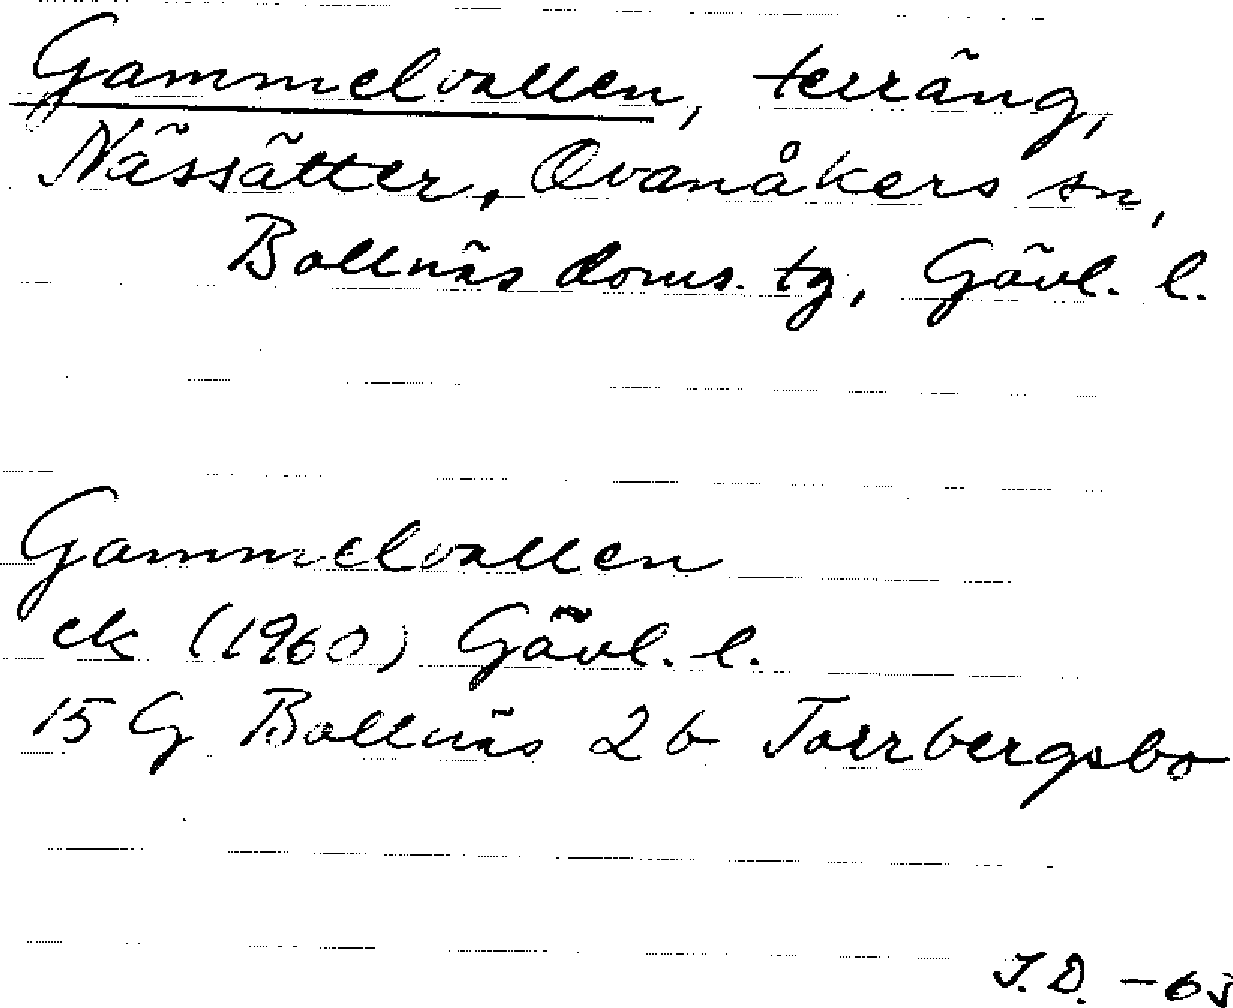 Gammelvallen, terräng,
Nässätter, Ovanåkers sn,
Bollnäs doms. tg, Gävl. l.
Gammelvallen
ek (1960) Gävl. l.
15 G Bollnäs 2b Torrbergsbo